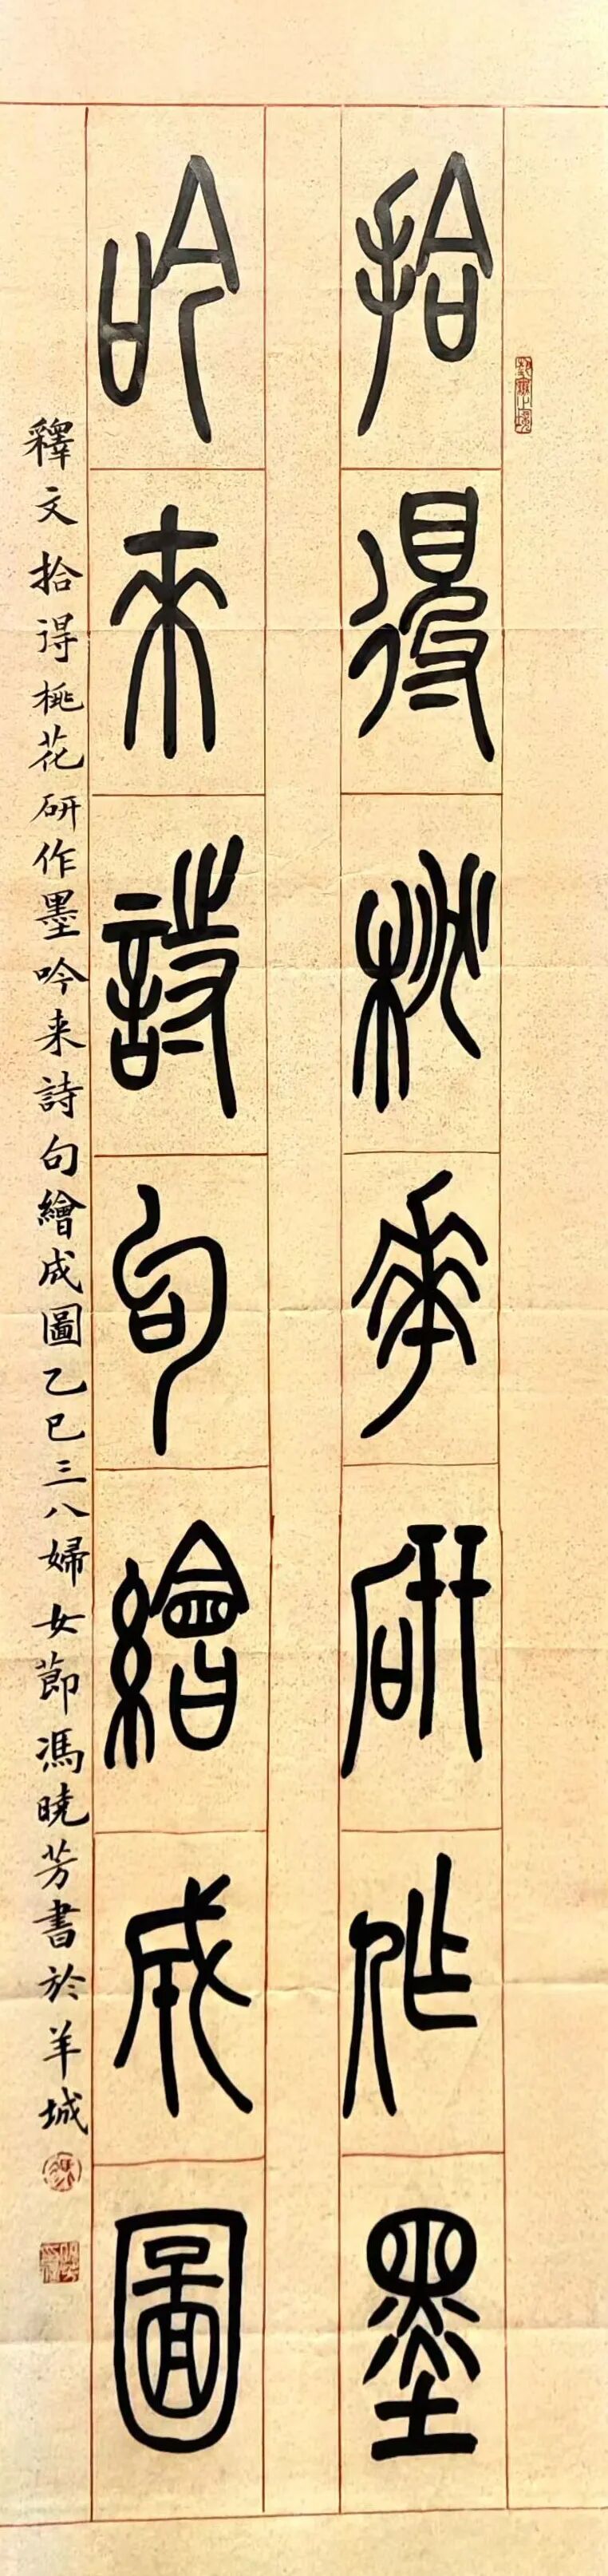 拾得桃花研作墨
吟来詩句繪成圖
釋文拾得桃花研作墨吟来詩句繪成圖乙巳三八婦女節馮曉芳書於羊城